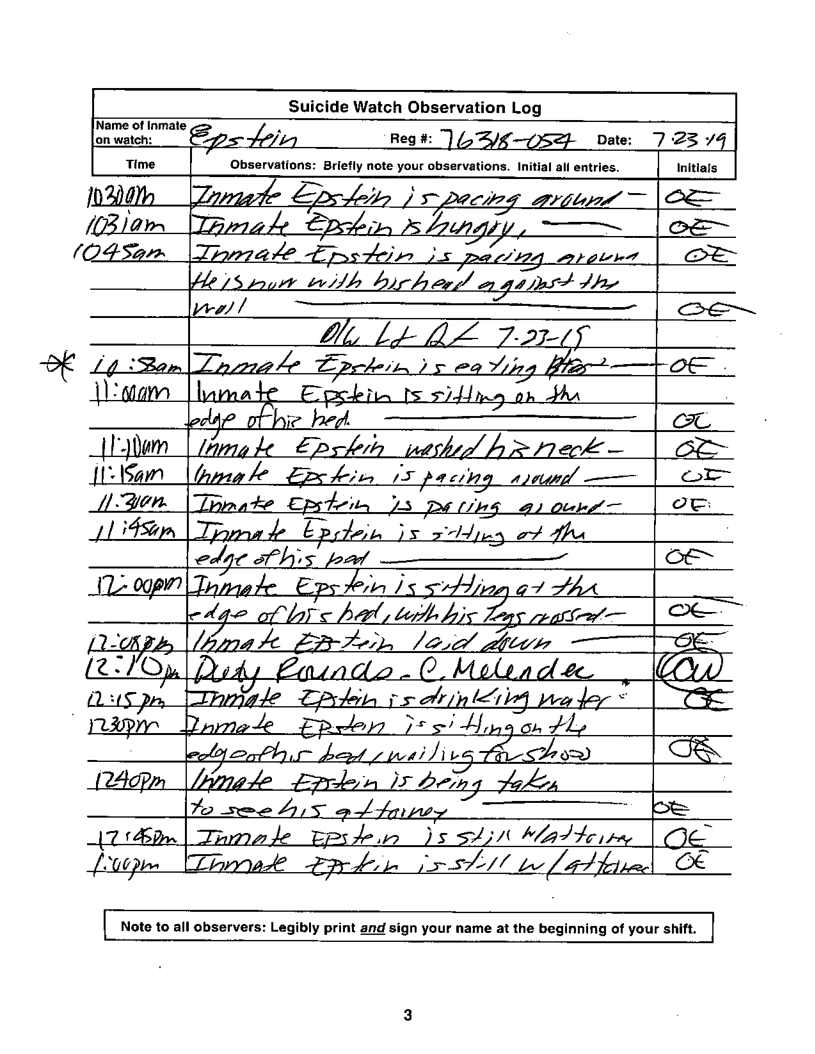 Suicide Watch Observation Log
Name of Inmate on watch: Epstein Reg #: 76318-054 Date: 7-23-19
Time Observations: Briefly note your observations. Initial all entries. Initials
1030am Inmate Epstein is pacing around — OE
1031am Inmate Epstein is hungry, — OE
1045am Inmate Epstein is pacing around OE
He is now with his head against the
wall — OE
Lt 7-23-19
* 10:58am Inmate Epstein is eating — OE
11:00am Inmate Epstein is sitting on the
edge of his bed. — OE
11:10am Inmate Epstein washed his neck — OE
11:15am Inmate Epstein is pacing around — OE
11:30am Inmate Epstein is pacing around — OE
11:45am Inmate Epstein is sitting at the
edge of his bed — OE
12:00pm Inmate Epstein is sitting at the
edge of his bed, with his legs crossed — OE
12:08pm Inmate Epstein laid down — OE
12:10pm Duty Rounds - C. Melendec
12:15pm Inmate Epstein is drinking water OE
1230pm Inmate Epstein is sitting on the
edge of his bed, waiting for OE
1240pm Inmate Epstein is being taken
to see his attorney — OE
12:45pm Inmate Epstein is still w/attorney OE
1:00pm Inmate Epstein is still w/ OE
Note to all observers: Legibly print and sign your name at the beginning of your shift.
3